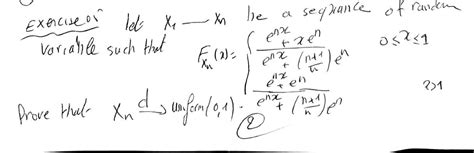 Exercise 01 let X₁ — Xₙ be a sequence of random
variable such that F_{Xₙ}(x) = { (e^{nx} + x eⁿ) / (e^{nx} + ((n+1)/n) eⁿ)   0 ≤ x ≤ 1
(e^{nx} + eⁿ) / (e^{nx} + ((n+1)/n) eⁿ)   x > 1
Prove that Xₙ →d uniform(0,1).
2